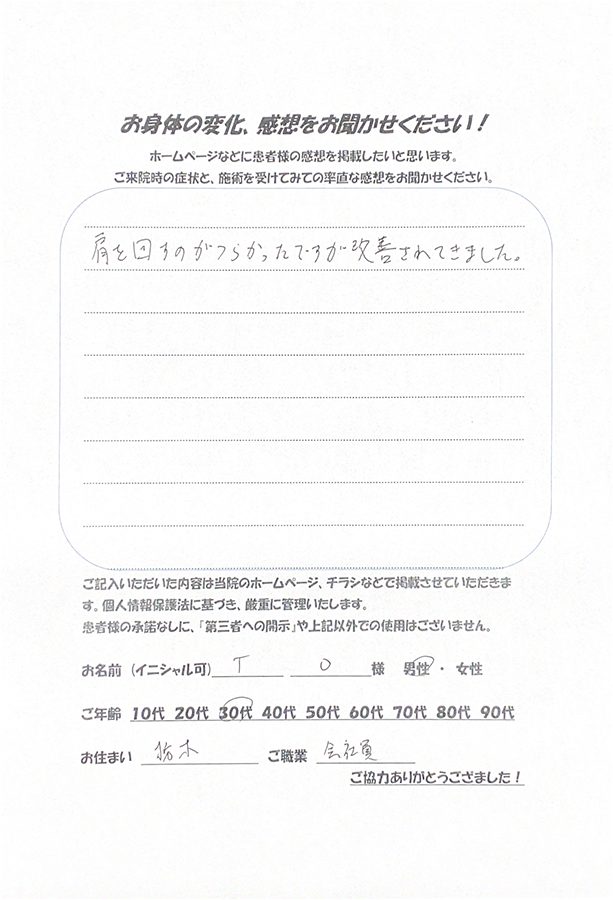 お身体の変化、感想をお聞かせください！
ホームページなどに患者様の感想を掲載したいと思います。
ご来院時の症状と、施術を受けてみての率直な感想をお聞かせください。
肩を回すのがつらかったですが改善されてきました。
ご記入いただいた内容は当院のホームページ、チラシなどで掲載させていただきま
す。個人情報保護法に基づき、厳重に管理いたします。
患者様の承諾なしに、「第三者への開示」や上記以外での使用はございません。
お名前（イニシャル可） T O 様 男性・女性
ご年齢 10代 20代 30代 40代 50代 60代 70代 80代 90代
お住まい 栃木 ご職業 会社員
ご協力ありがとうござました！